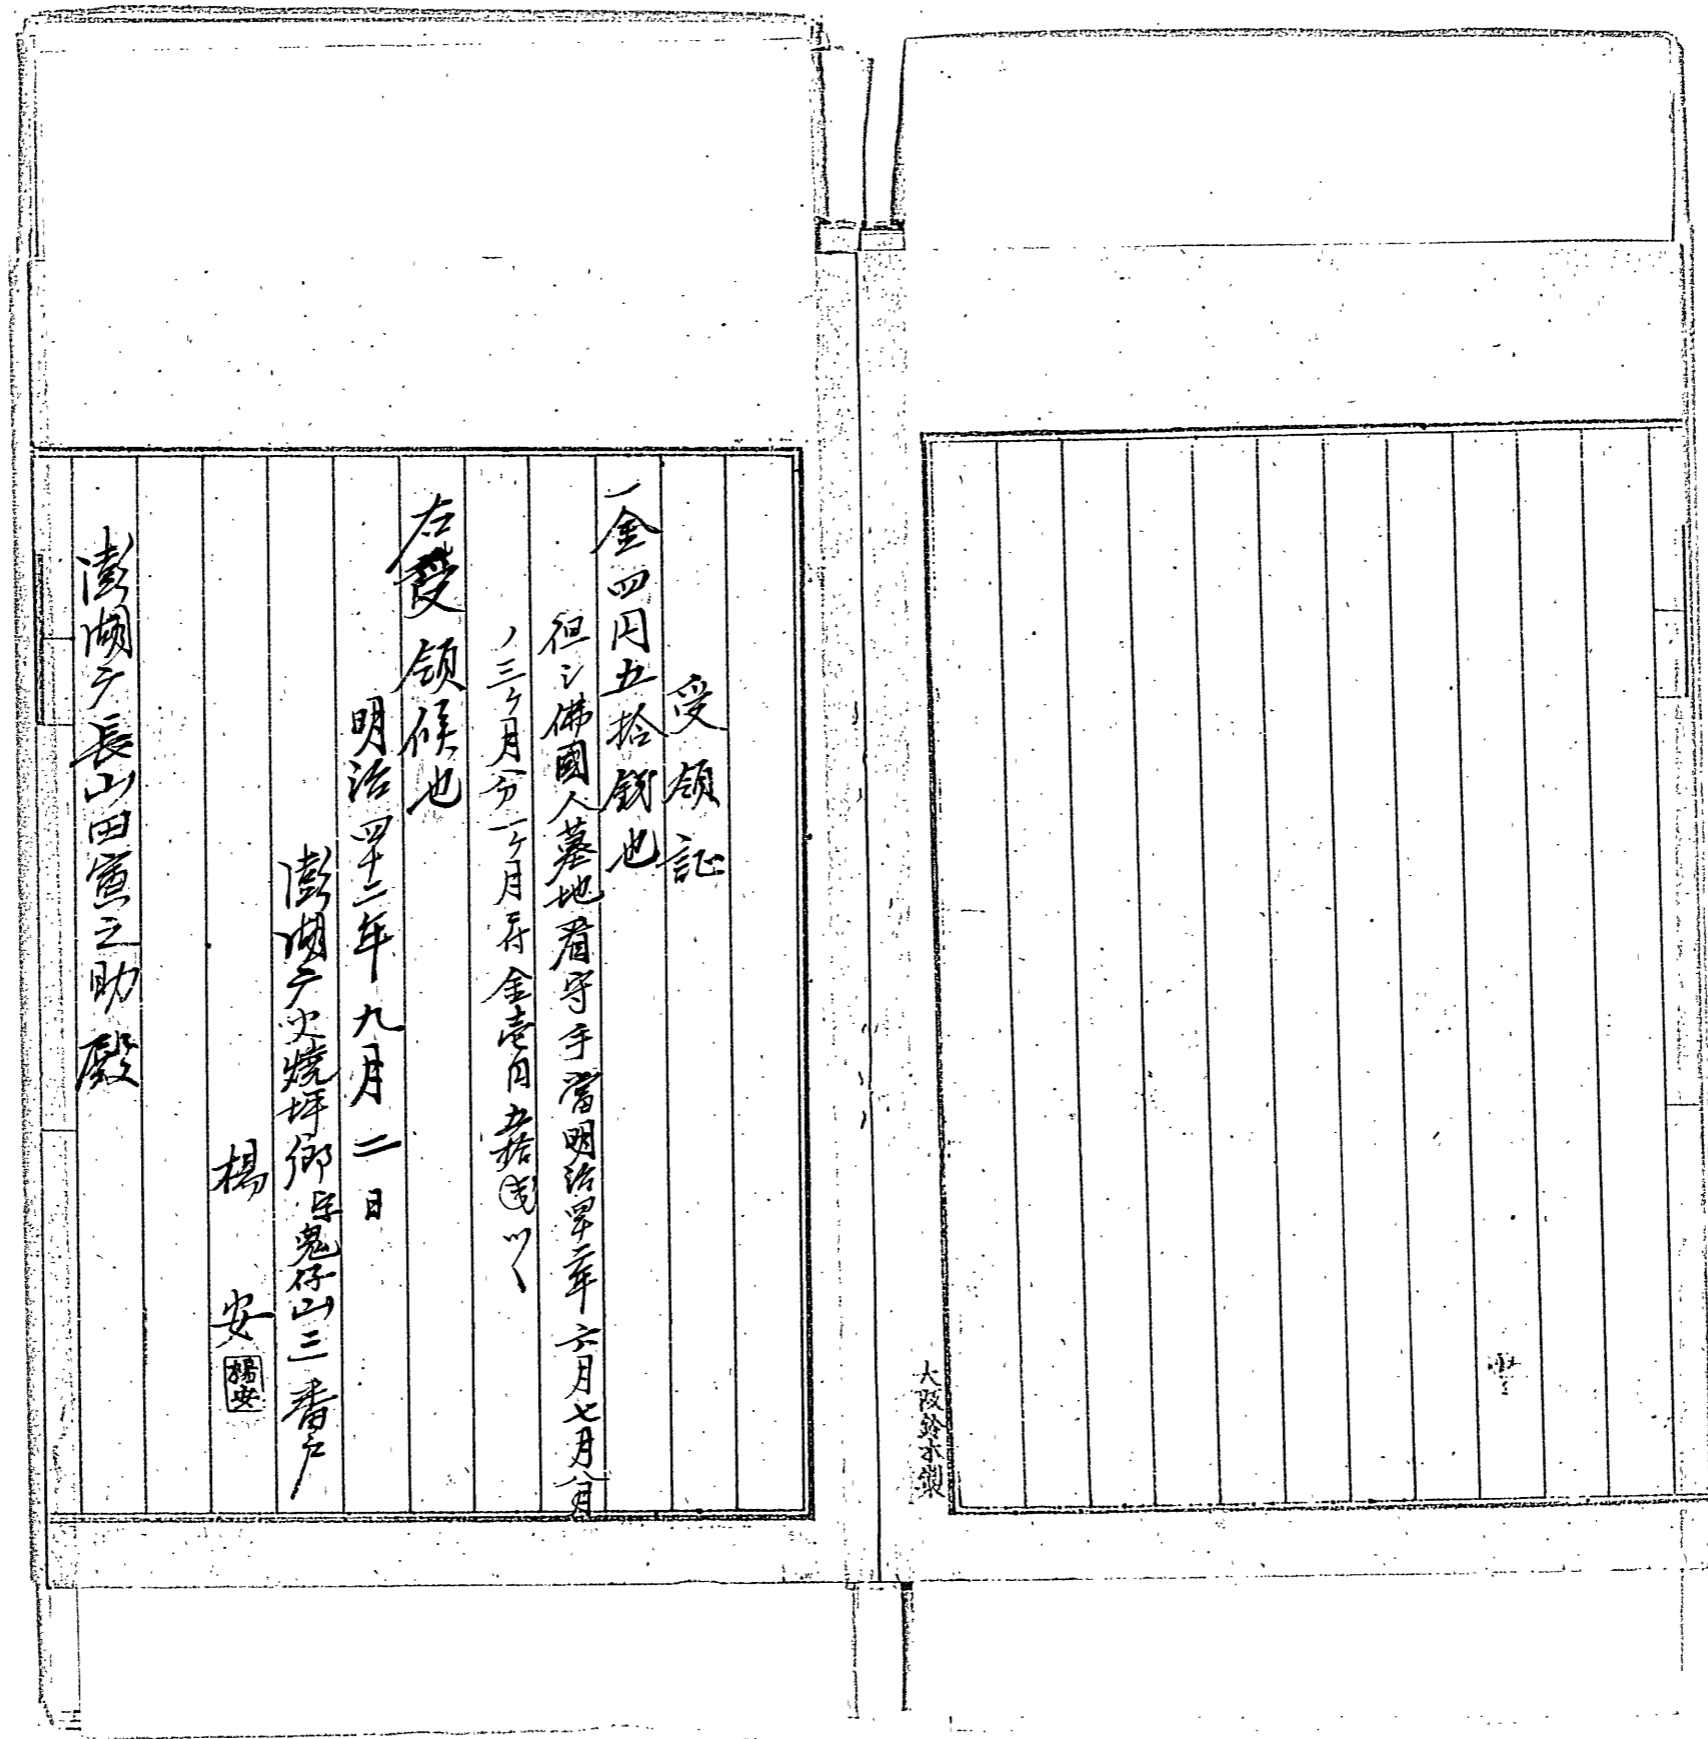 大阪鈴木製
受領証
一金四円五拾銭也
但シ佛國人墓地看守手當明治四十二年六月七月八月
ノ三ケ月分一ケ月ニ付金壱円五拾銭ツヽ
右受領候也
明治四十二年九月二日
澎湖庁火燒坪鄉字鬼仔山三番戸
楊安
楊安
澎湖庁長山田寅之助殿